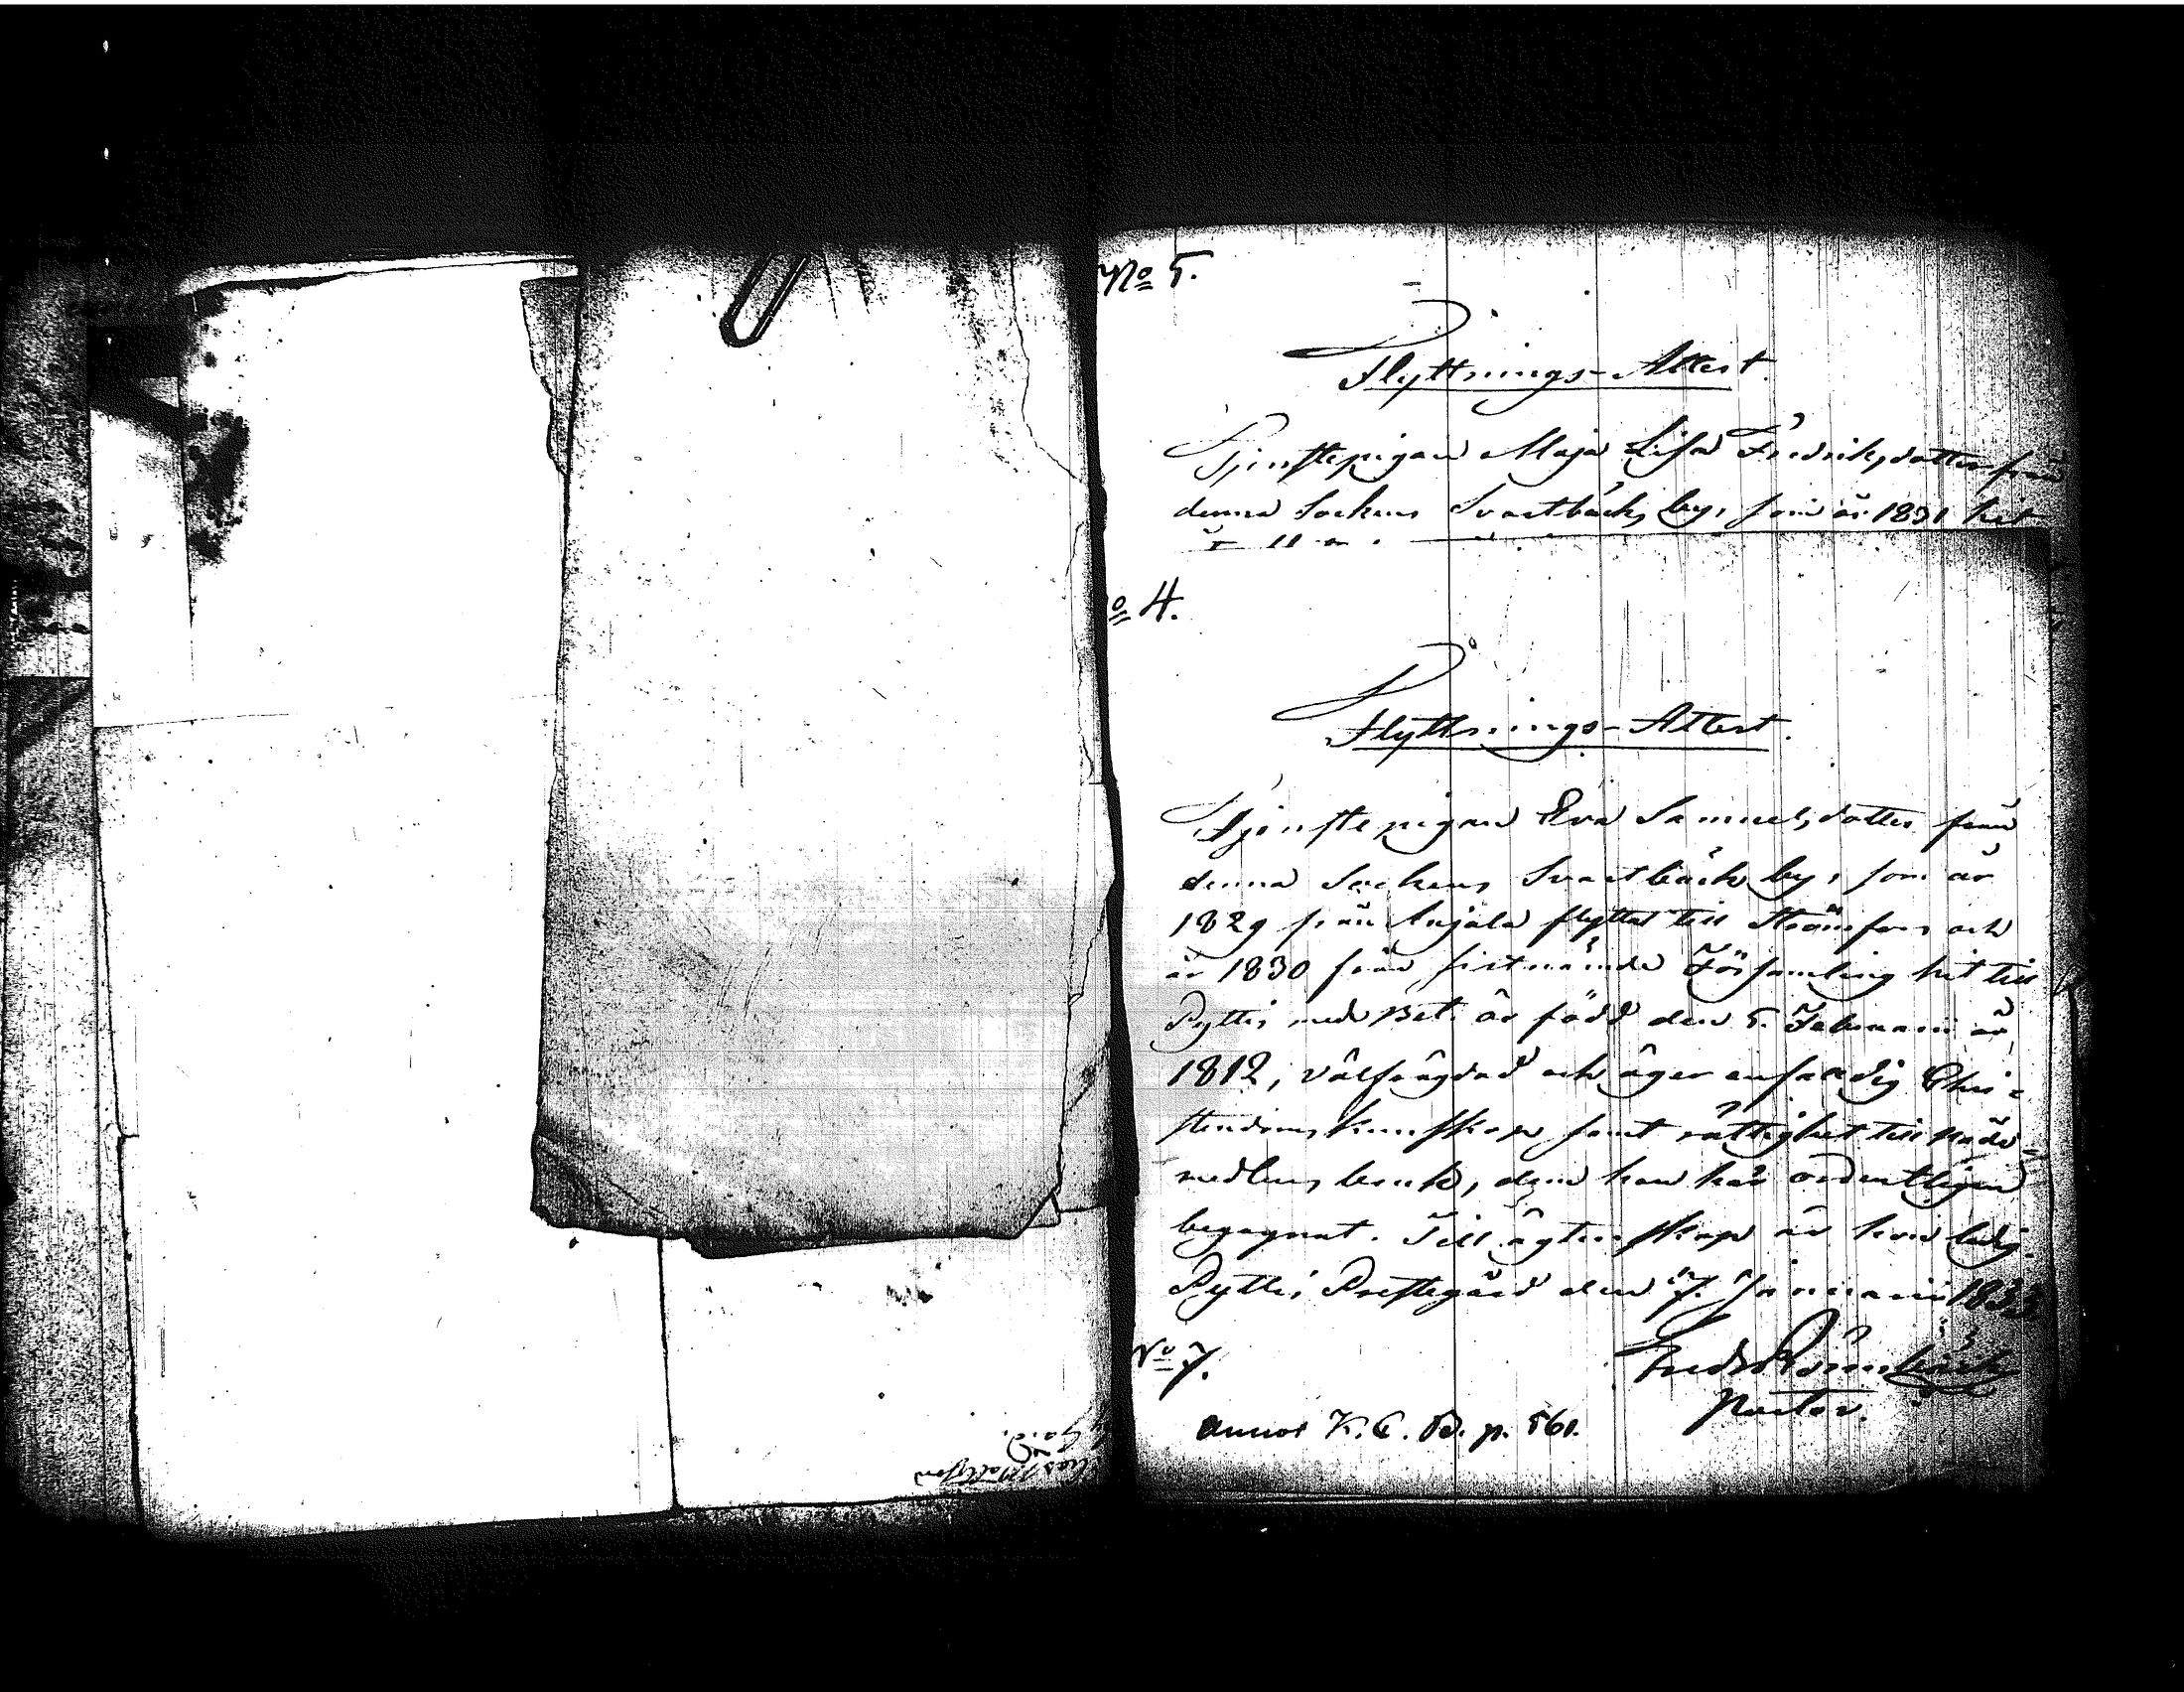 No 5.
Flyttnings-Attest.
Tjenstepigan Maja Lisa Fredriksdotter från
denna Sockens Svartbäcks by, som år 1831 hit
No 4.
Flyttnings-Attest.
Tjenstepigan Eva Samuelsdotter från
denna Sockens Svartbäck by, som år
1829 från Anjala flyttat till Strömfors och
år 1830 från sistnämde Församling hit till
Pyttis med Bet. är född den 5. Februarii år
1812, välfrägdad och äger enfaldig Chri=
stendoms kunskap samt rättighet till Nåde=
medlens bruk, dem hon här ordentligen
begagnat. Till ägtenskap är hon ledig.
Pyttis Prestegård den 7. Januarii 1833.
No 7.
Pastor.
Annot K. C. Bd. p. 561.